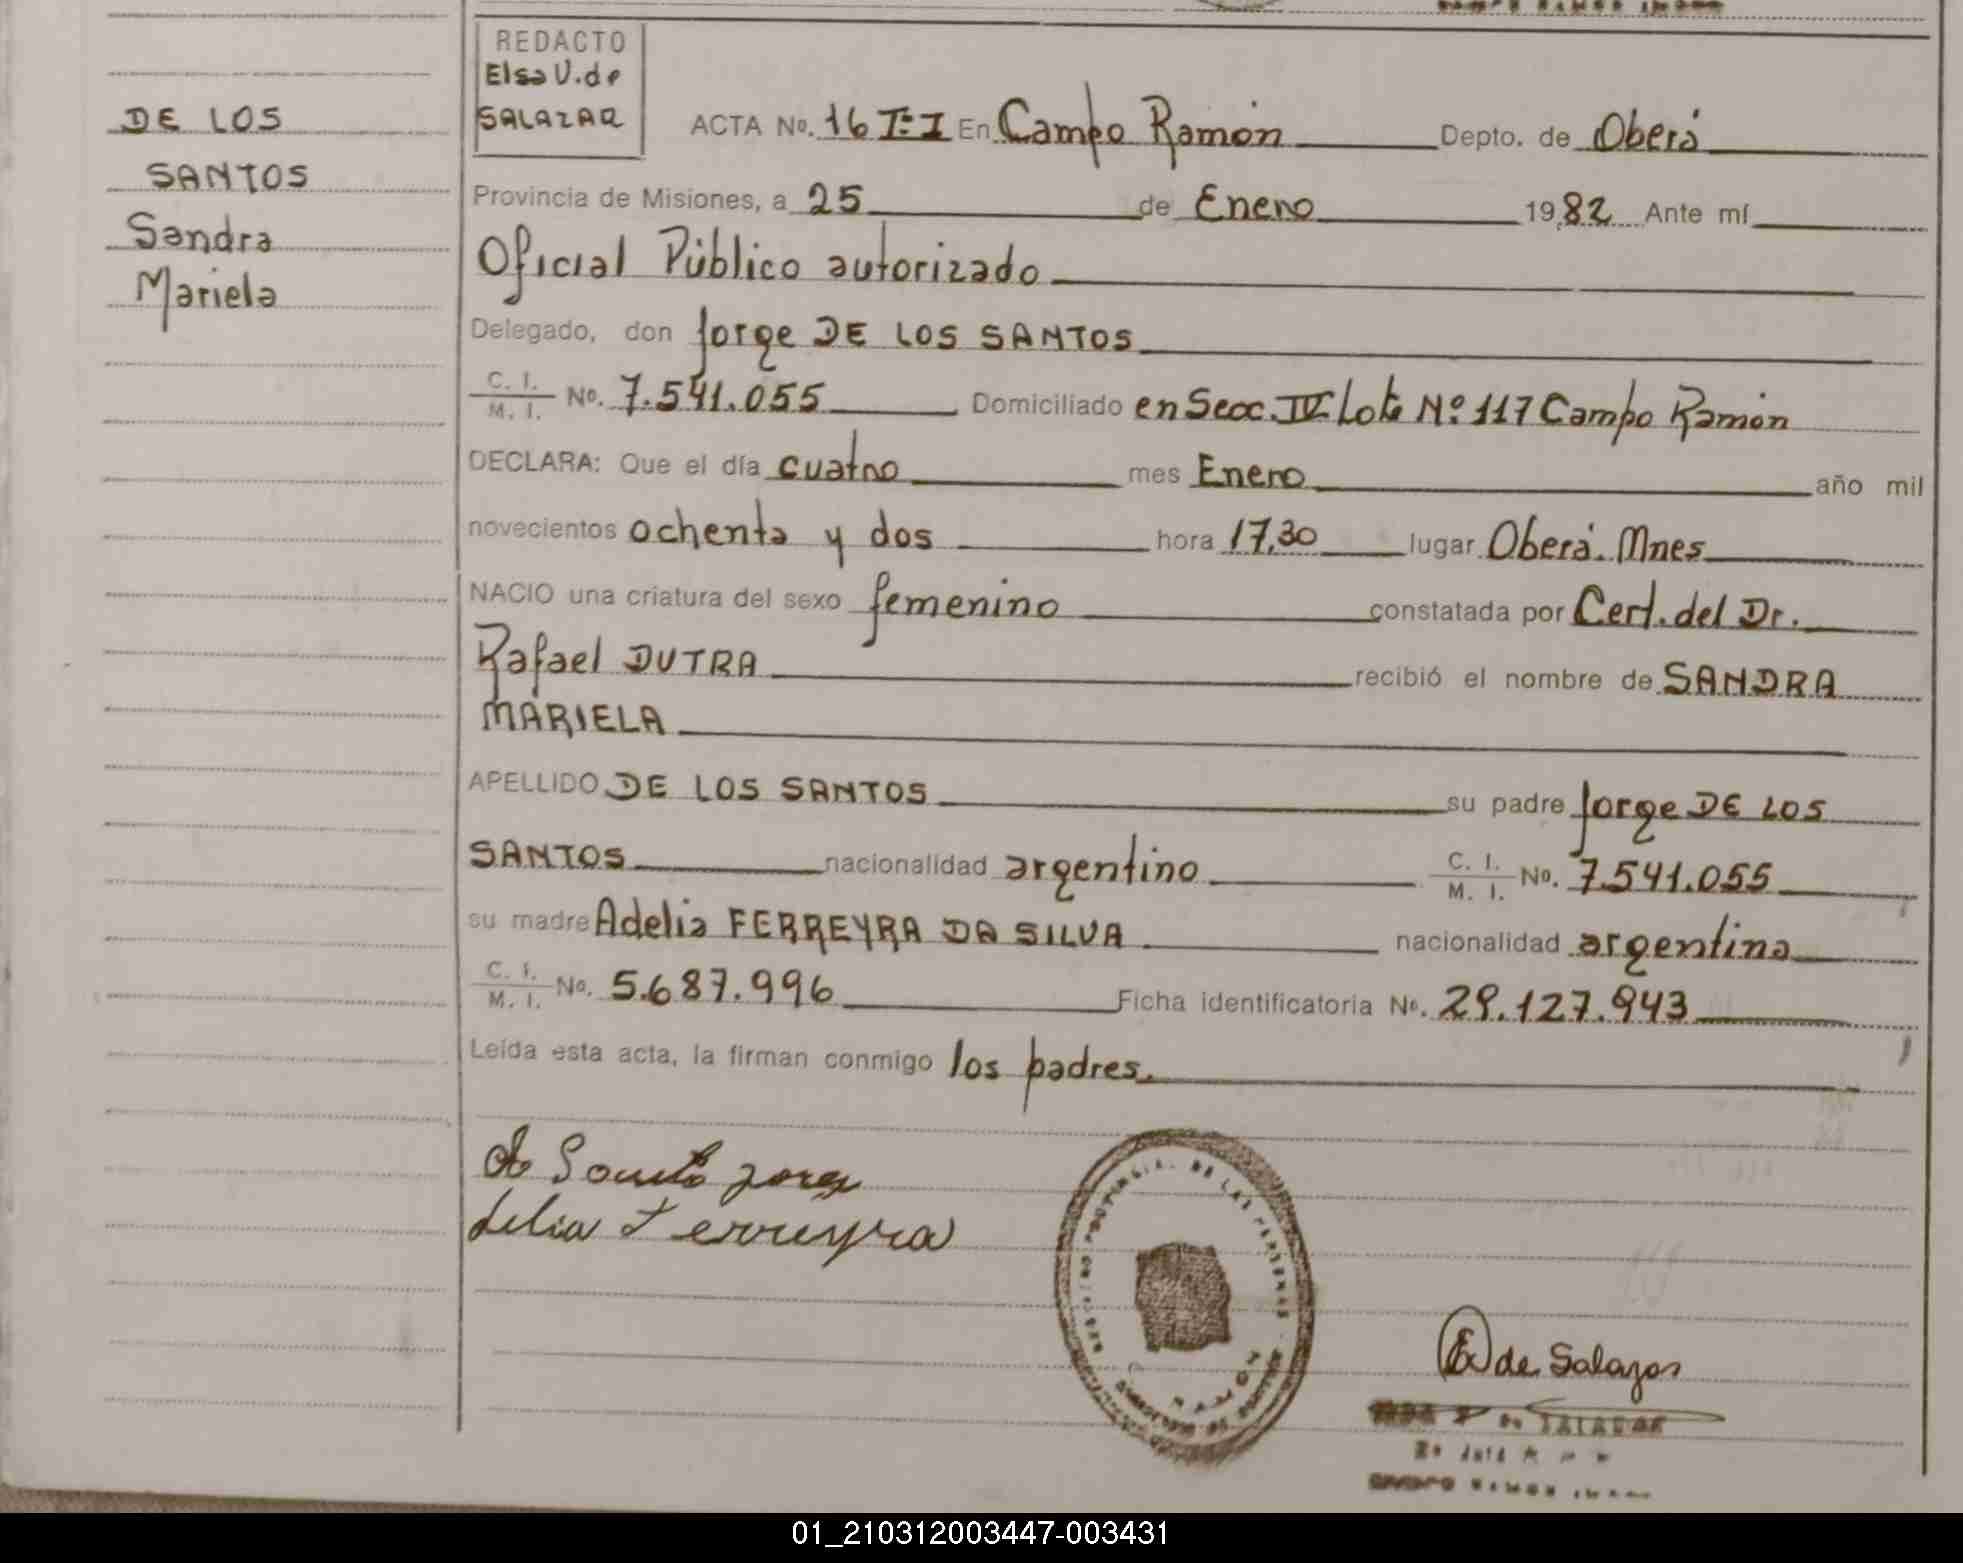 DE LOS
SANTOS
Sandra
Mariela
REDACTO
Elsa V. de
SALAZAR
ACTA No. 16 Tº I En Campo Ramón Depto. de Oberá
Provincia de Misiones, a 25 de Enero 1982 Ante mí
Oficial Público autorizado
Delegado, don Jorge DE LOS SANTOS
C. I. / M. I. No. 7.541.055 Domiciliado en Secc. IV Lote Nº 117 Campo Ramón
DECLARA: Que el día cuatro mes Enero año mil
novecientos ochenta y dos hora 17,30 lugar Oberá. Mnes
NACIO una criatura del sexo femenino constatada por Cert. del Dr.
Rafael DUTRA recibió el nombre de SANDRA
MARIELA
APELLIDO DE LOS SANTOS su padre Jorge DE LOS
SANTOS nacionalidad argentino C. I. / M. I. No. 7.541.055
su madre Adelia FERREYRA DA SILVA nacionalidad argentina
C. I. / M. I. No. 5.687.996 Ficha identificatoria No. 29.127.943
Leída esta acta, la firman conmigo los padres.
Ferreyra
PROVINCIAL DE LAS PERSONAS
de Salazar
de SALAZAR
01_210312003447-003431